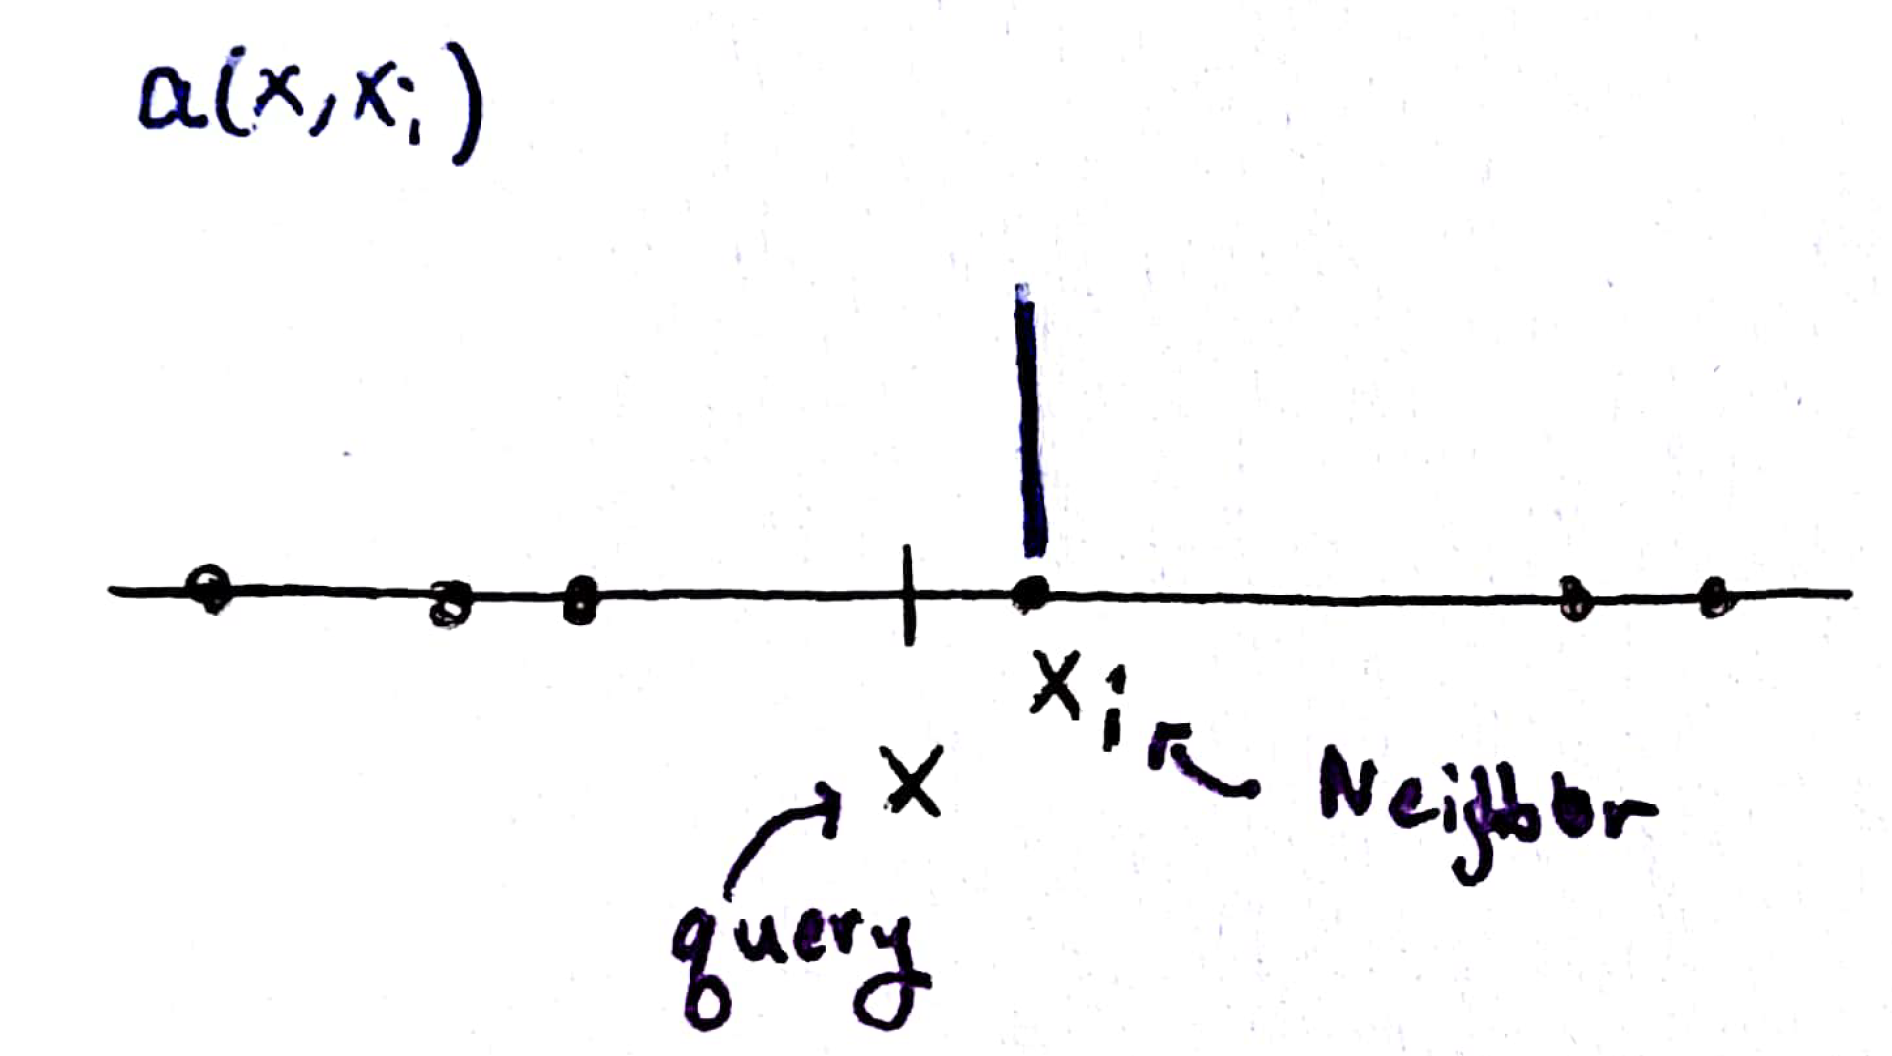 a(x,xᵢ)
xᵢ
x
Neighbor
query